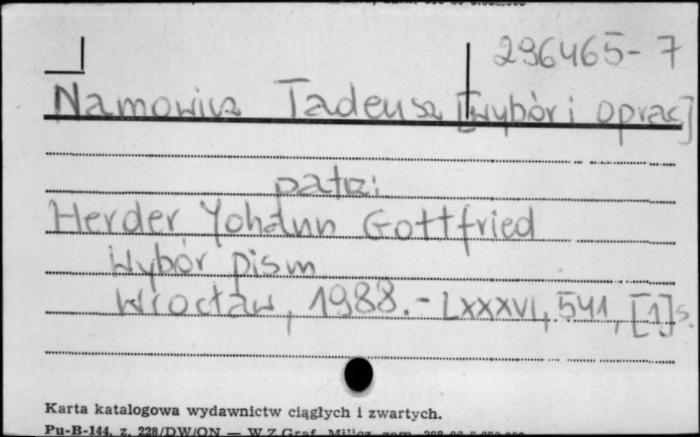 296465-7
Namowicz Tadeusz [wybór i oprac]
patrz:
Herder Yohann Gottfried
Wybór pism
Wrocław, 1988.- LXXXVI, 541, [1]s.
Karta katalogowa wydawnictw ciągłych i zwartych.
Pu-B-144, z. 228/DW/ON — W.Z.Graf.